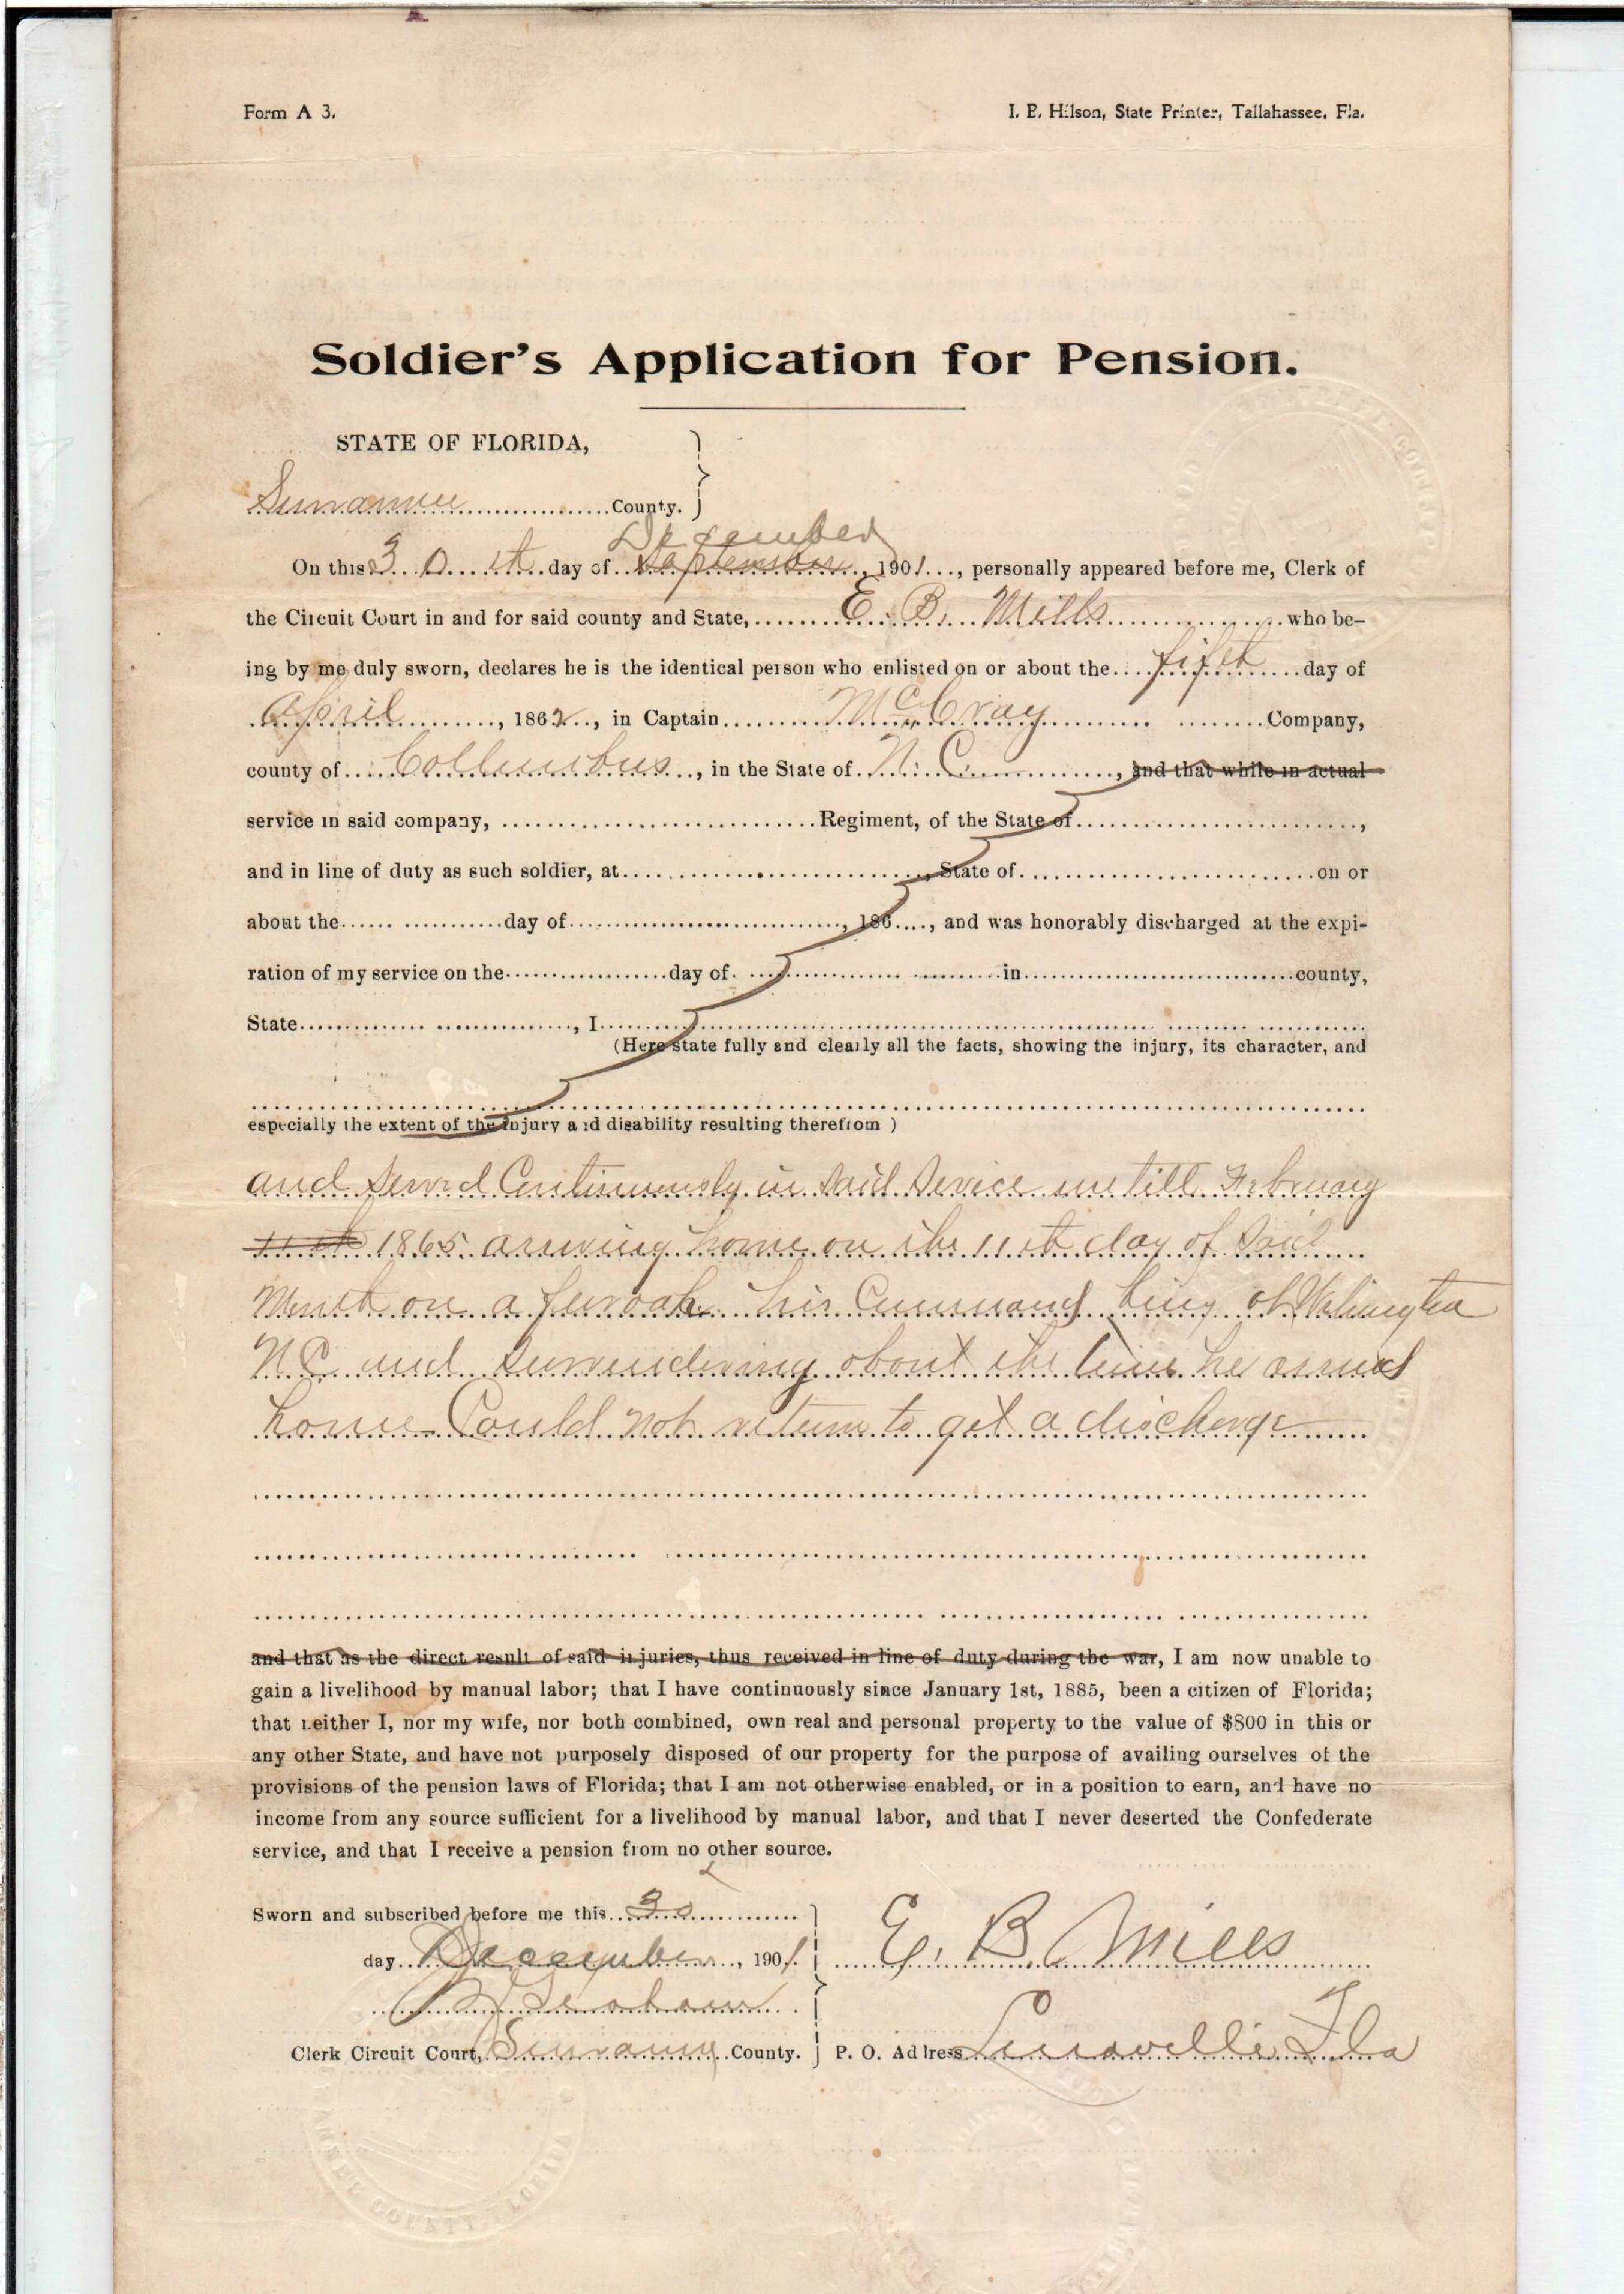 Form A 3.
I. B. Hilson, State Printer, Tallahassee, Fla.
Soldier's Application for Pension.
STATE OF FLORIDA,
Suwannee County.
December
On this 30th day of September, 1901, personally appeared before me, Clerk of
the Circuit Court in and for said county and State, E. B. Mills who be-
ing by me duly sworn, declares he is the identical person who enlisted on or about the fifth day of
April, 1862, in Captain McCray Company,
county of Collumbus, in the State of N. C., and that while in actual
service in said company, Regiment, of the State of
and in line of duty as such soldier, at, State of on or
about the day of, 186, and was honorably discharged at the expi-
ration of my service on the day of in county,
State, I
(Here state fully and clearly all the facts, showing the injury, its character, and
especially the extent of the injury and disability resulting therefrom )
and served Continuously in said Service untill February
11th 1865 arriving home on the 11th day of said
Month on a furoah his Command being at Wilmington
N.C. and surrendering about the time he arrived
home Could not return to get a discharge
and that as the direct result of said injuries, thus received in line of duty during the war, I am now unable to
gain a livelihood by manual labor; that I have continuously since January 1st, 1885, been a citizen of Florida;
that neither I, nor my wife, nor both combined, own real and personal property to the value of $800 in this or
any other State, and have not purposely disposed of our property for the purpose of availing ourselves of the
provisions of the pension laws of Florida; that I am not otherwise enabled, or in a position to earn, and have no
income from any source sufficient for a livelihood by manual labor, and that I never deserted the Confederate
service, and that I receive a pension from no other source.
Sworn and subscribed before me this 30
day December, 1901. E. B. Mills
Clerk Circuit Court, Suwannee County. P. O. Address Fla